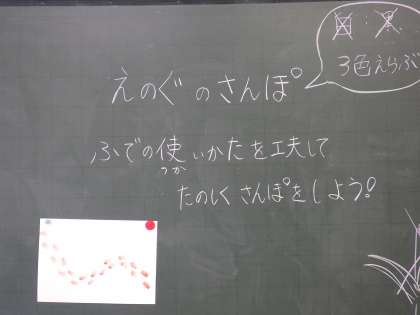 えのぐ の さんぽ
3色えらぶ
ふでの使いかたを工夫して
つか
たのしく さんぽをしよう!